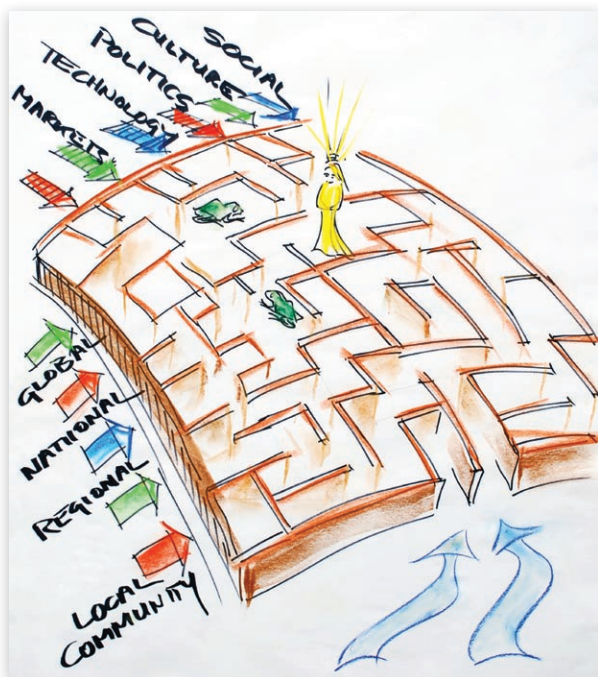 SOCIAL
CULTURE
POLITICS
TECHNOLOGY
MARKETS
GLOBAL
NATIONAL
REGIONAL
LOCAL
COMMUNITY